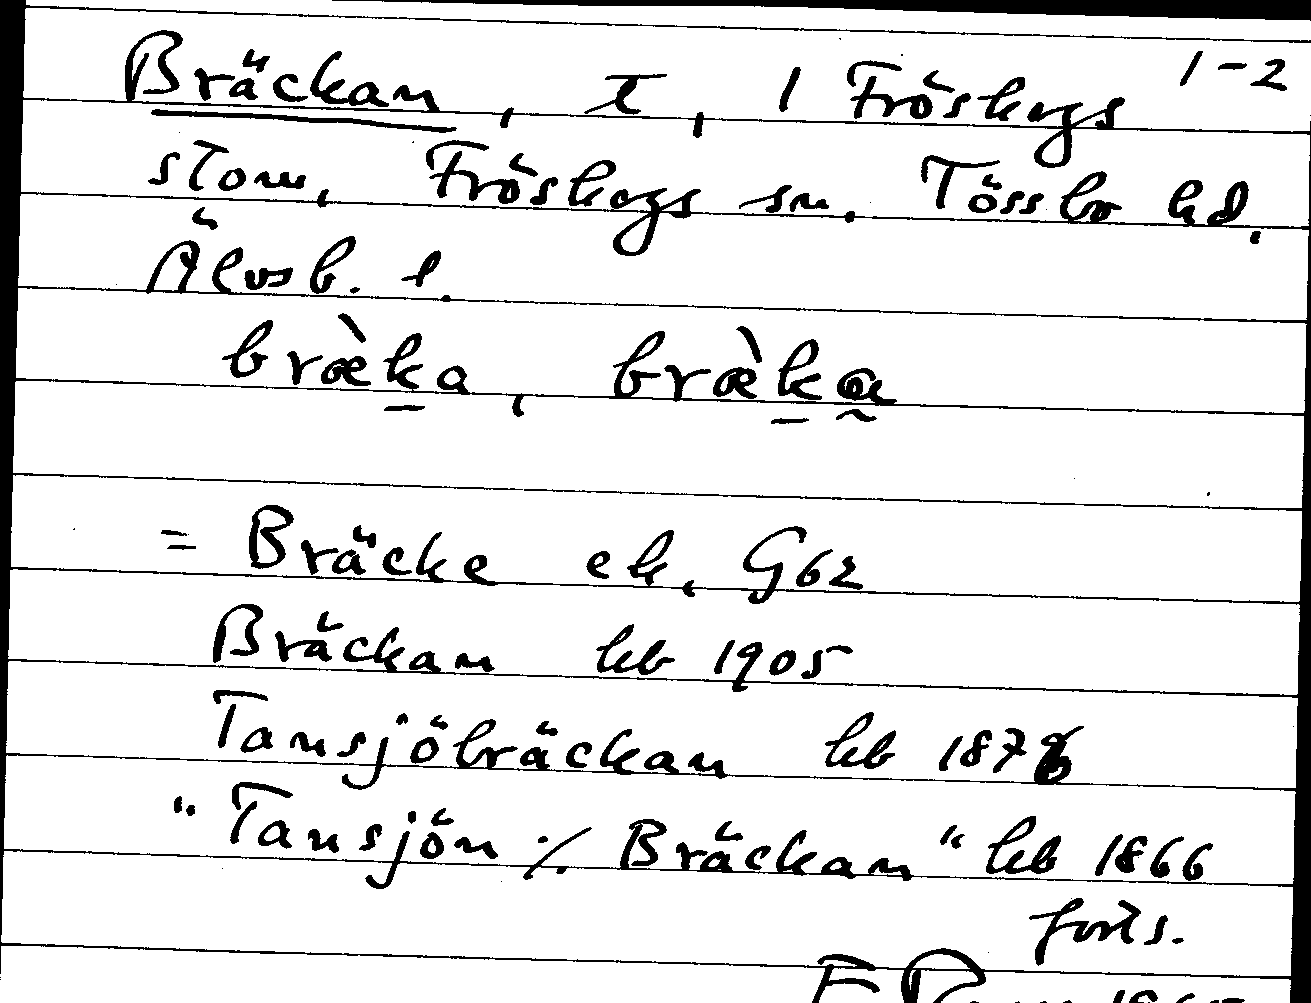 Bräckan, t, 1 Fröskogs 1-2
stom, Fröskogs sn. Tössbo hd.
Älvsb. l.
bræ̀ka, bræ̀ka
= Bräcke ek. G62
Bräckan hfb 1905
Tansjöbräckan hfb 1876
"Tansjön ./. Bräckan" hfb 1866
forts.